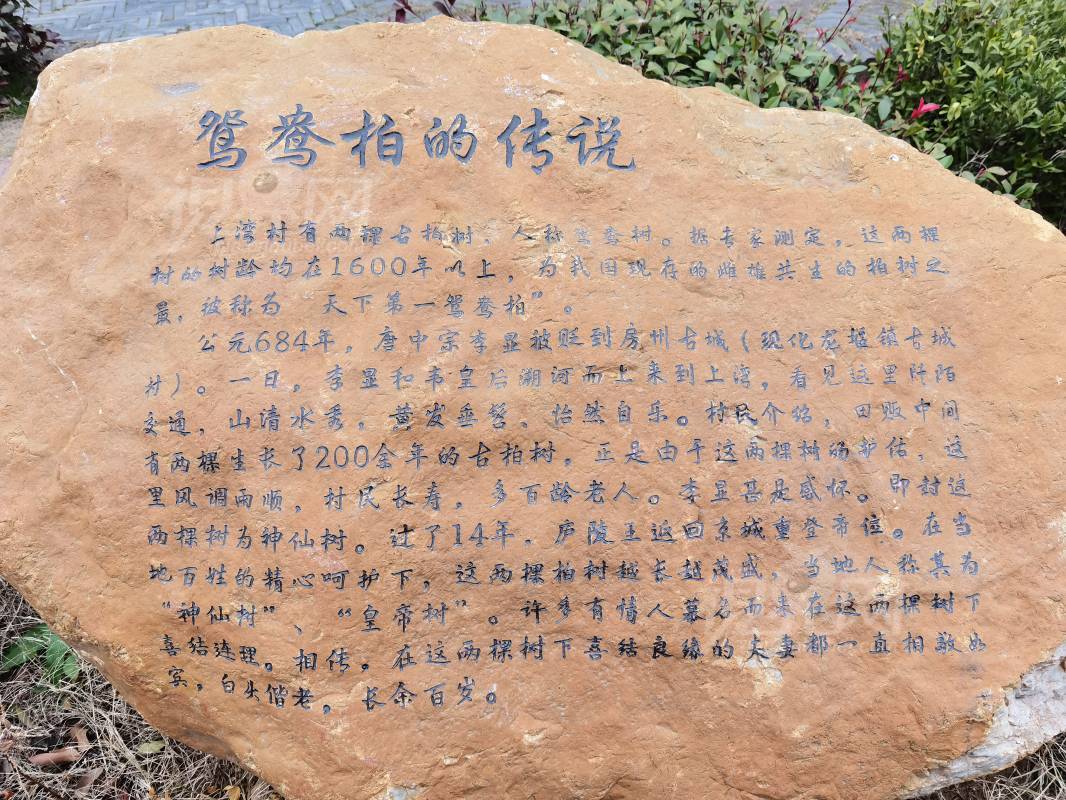 鸳鸯柏的传说
上湾村有两棵古柏树，人称鸳鸯树。据专家测定，这两棵
树的树龄均在1600年以上，为我国现存的雌雄共生的柏树之
最，被称为 天下第一鸳鸯柏”。
公元684年，唐中宗李显被贬到房州古城（现化龙堰镇古城
村）。一日，李显和韦皇后溯河而上来到上湾，看见这里阡陌
交通，山清水秀，黄发垂髫、怡然自乐。村民介绍，田畈中间
有两棵生长了200余年的古柏树，正是由于这两棵树的护佑，这
里风调雨顺，村民长寿，多百龄老人。李显甚是感怀。即封这
两棵树为神仙树。过了14年，庐陵王返回京城重登帝位。在当
地百姓的精心呵护下，这两棵柏树越长越茂盛，当地人称其为
“神仙树”、“皇帝树”。许多有情人慕名而来在这两棵树下
喜结连理。相传，在这两棵树下喜结良缘的夫妻都一直相敬如
宾，白头偕老，长余百岁。